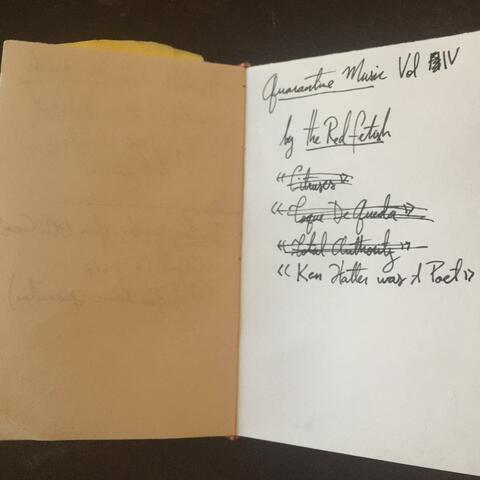 Quarantine Music Vol IV
by the Red Fetish
«Citruses»
«Toque De Queda»
«Total Authority»
«Ken Hatter was A Poet»